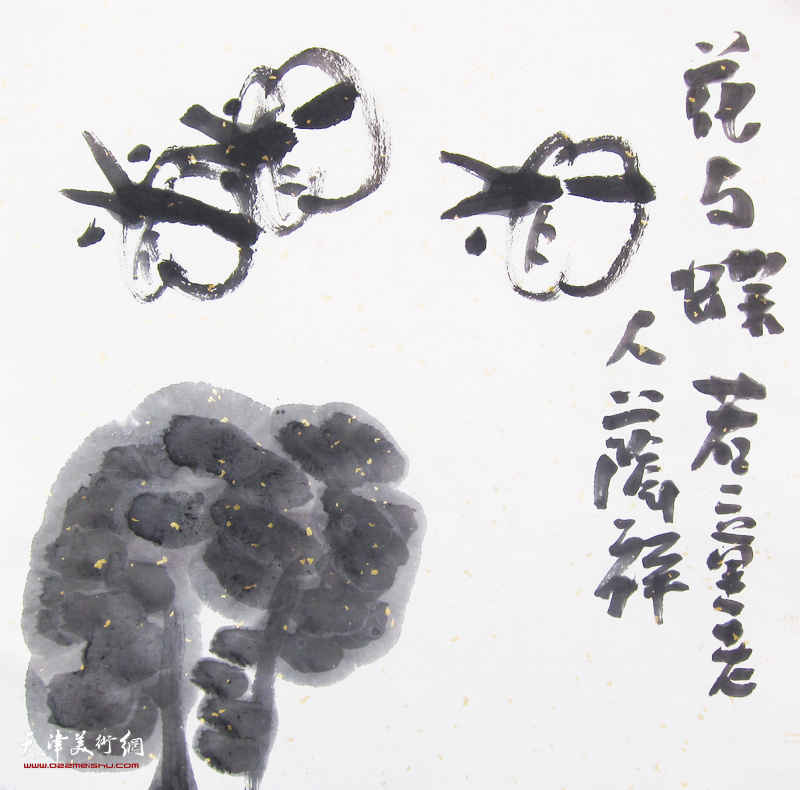 花与蝶 若三里老
人荫祥
天津美術網
www.022meishu.com